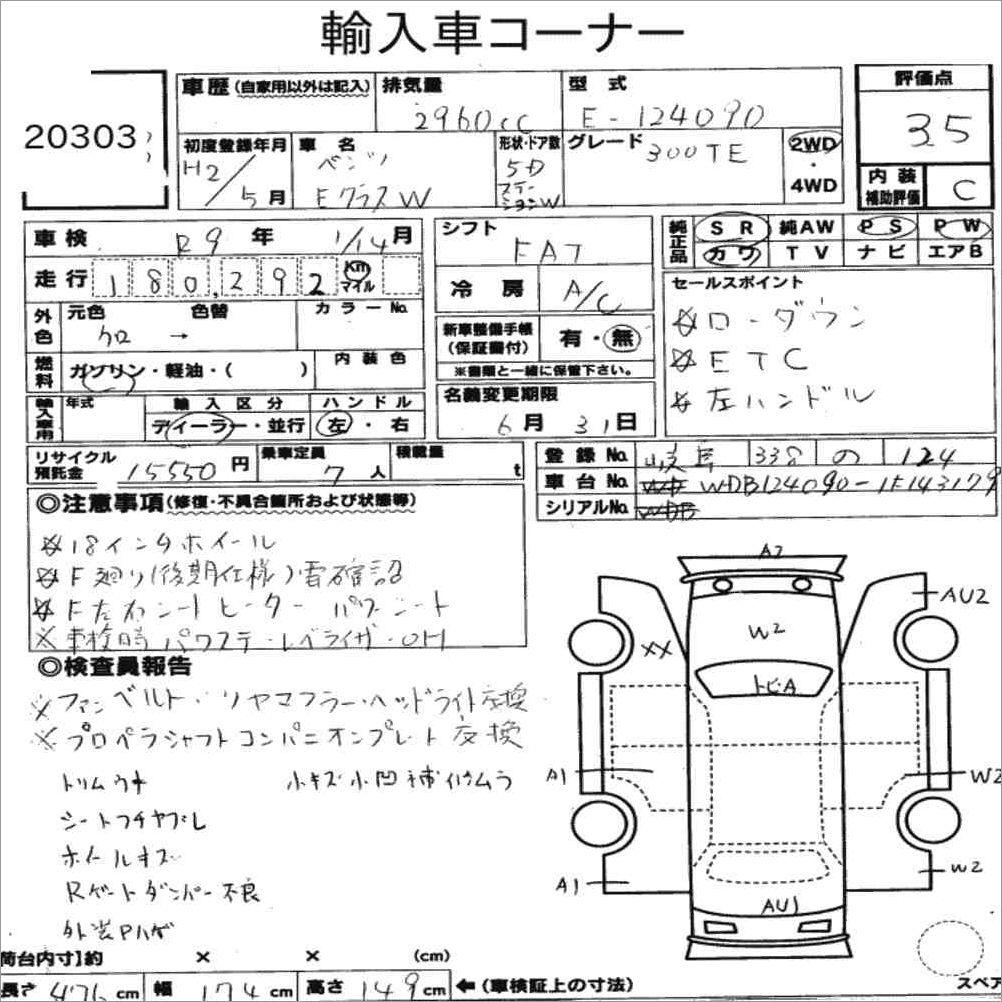 輸入車コーナー
20303
車歴 (自家用以外は記入)
排気量
2960cc
型式
E-124090
評価点
3.5
初度登録年月
H2/5月
車名
ベンツ
EクラスW
形状・ドア数
5D
ステーションW
グレード
300TE
2WD・4WD
内装補助評価
C
車検 R9年 1/14月
走行 180,292 Km マイル
シフト
FAT
冷房 A/C
純正品
SR 純AW PS PW
カワ TV ナビ エアB
セールスポイント
※ローダウン
※ETC
※左ハンドル
外色
元色 色替
クロ →
カラーNo.
燃料
ガソリン・軽油・( )
内装色
新車整備手帳
(保証書付)
有・無
※書類と一緒に保管下さい。
輸入車用
年式
輸入区分
ディーラー・並行
ハンドル
左・右
名義変更期限
6月 31日
リサイクル預託金 15550円
乗車定員
7人
積載量
t
登録No. 岐阜 338 の 124
車台No. WDB124090-1F143179
シリアルNo.
◎注意事項(修復・不具合箇所および状態等)
※18インチホイール
※F廻り(後期仕様)要確認
※F左右シートヒーター パワーシート
※車検時 パワステ・レベライザーOH
◎検査員報告
※ファンベルト・リヤマフラー・ヘッドライト交換
※プロペラシャフトコンパニオンプレート交換
トリムウキ 小キズ小凹補修ムラ
シートフチヤブレ
ホイールキズ
Rゲートダンパー不良
外装Pハゲ
A2
AU2
W2
XX
トビA
A1
W2
A1
W2
AU1
荷台内寸】約 × × (cm)
長さ 476cm 幅 174cm 高さ 149cm ←(車検証上の寸法)
スペア